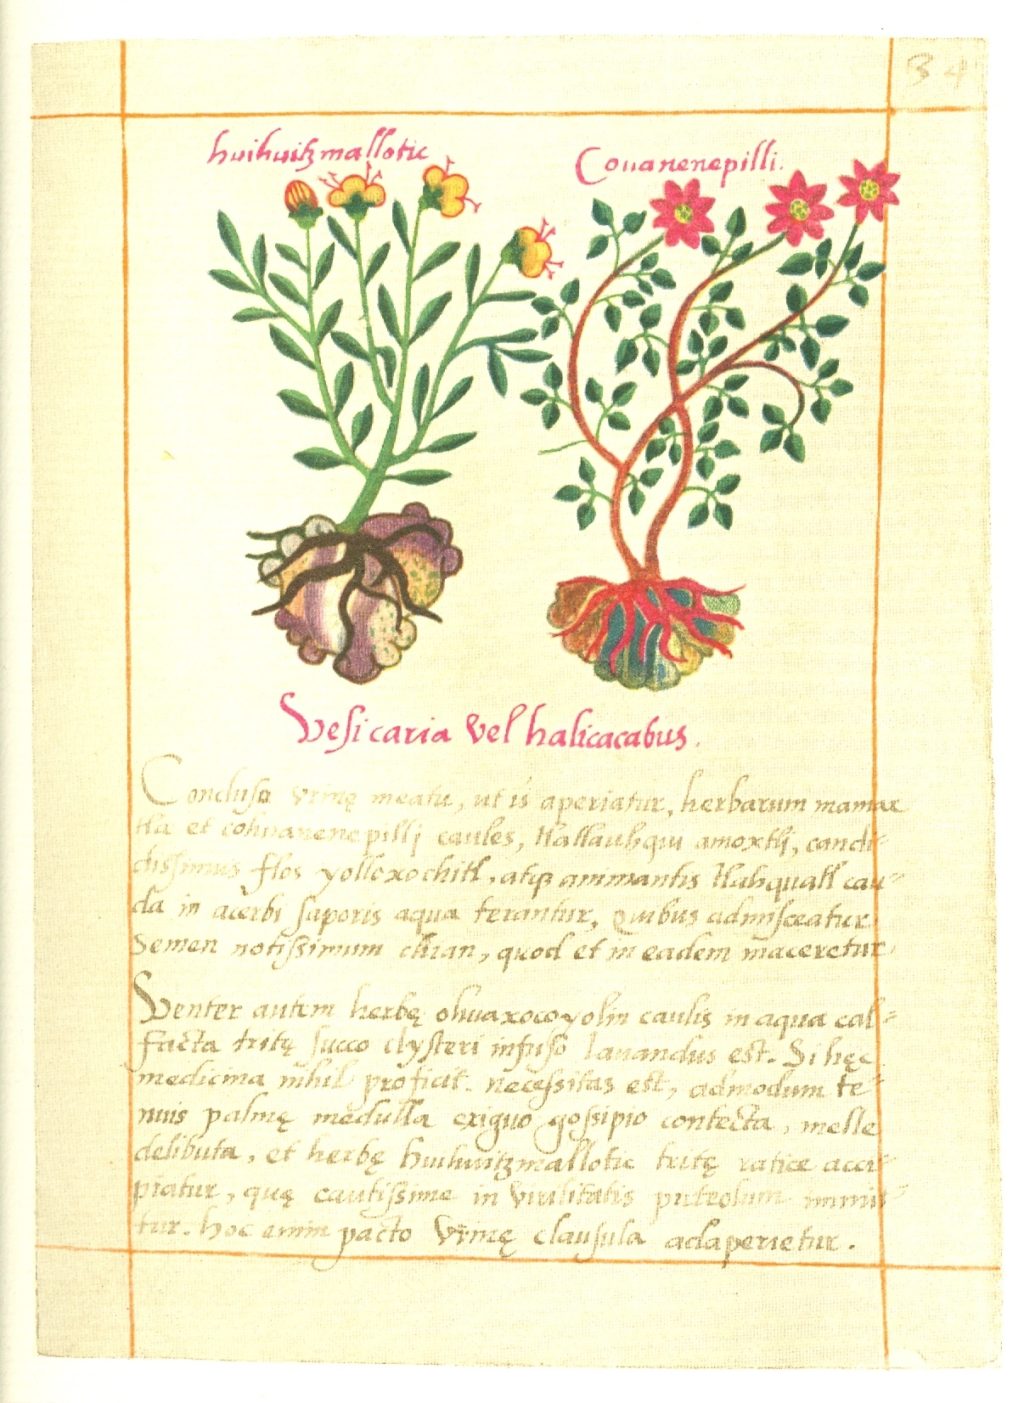 34
huihuitzmallotic
Couanenepilli.
Vesicaria vel halicacabus.
Conclusa vrinę meatu, ut is aperiatur, herbarum mamax
tla et cohuanenepillj caules, tlallauhqui amoxtlj, candi-
dissimus flos yolloxochitl, atq; ammantis tlahquatl cau-
da in acerbi saporis aqua terantur, Quibus admisceatur
semen notissimum chian, quod et in eadem maceretur.
Venter autem herbę ohuaxocoyolin caulis in aqua cal-
facta tritę succo clysteri infuso lauandus est. Si hęc
medicina nihil proficit. necessitas est, admodum te-
nuis palmę medulla exiguo gossipio contecta, melle
delibuta, et herbę huihuitzmallotic tritę ratice acci-
piatur, quę cautissime in virilitatis putrolum inmit-
tur. hoc enim pacto vrinę clausula adaperietur.